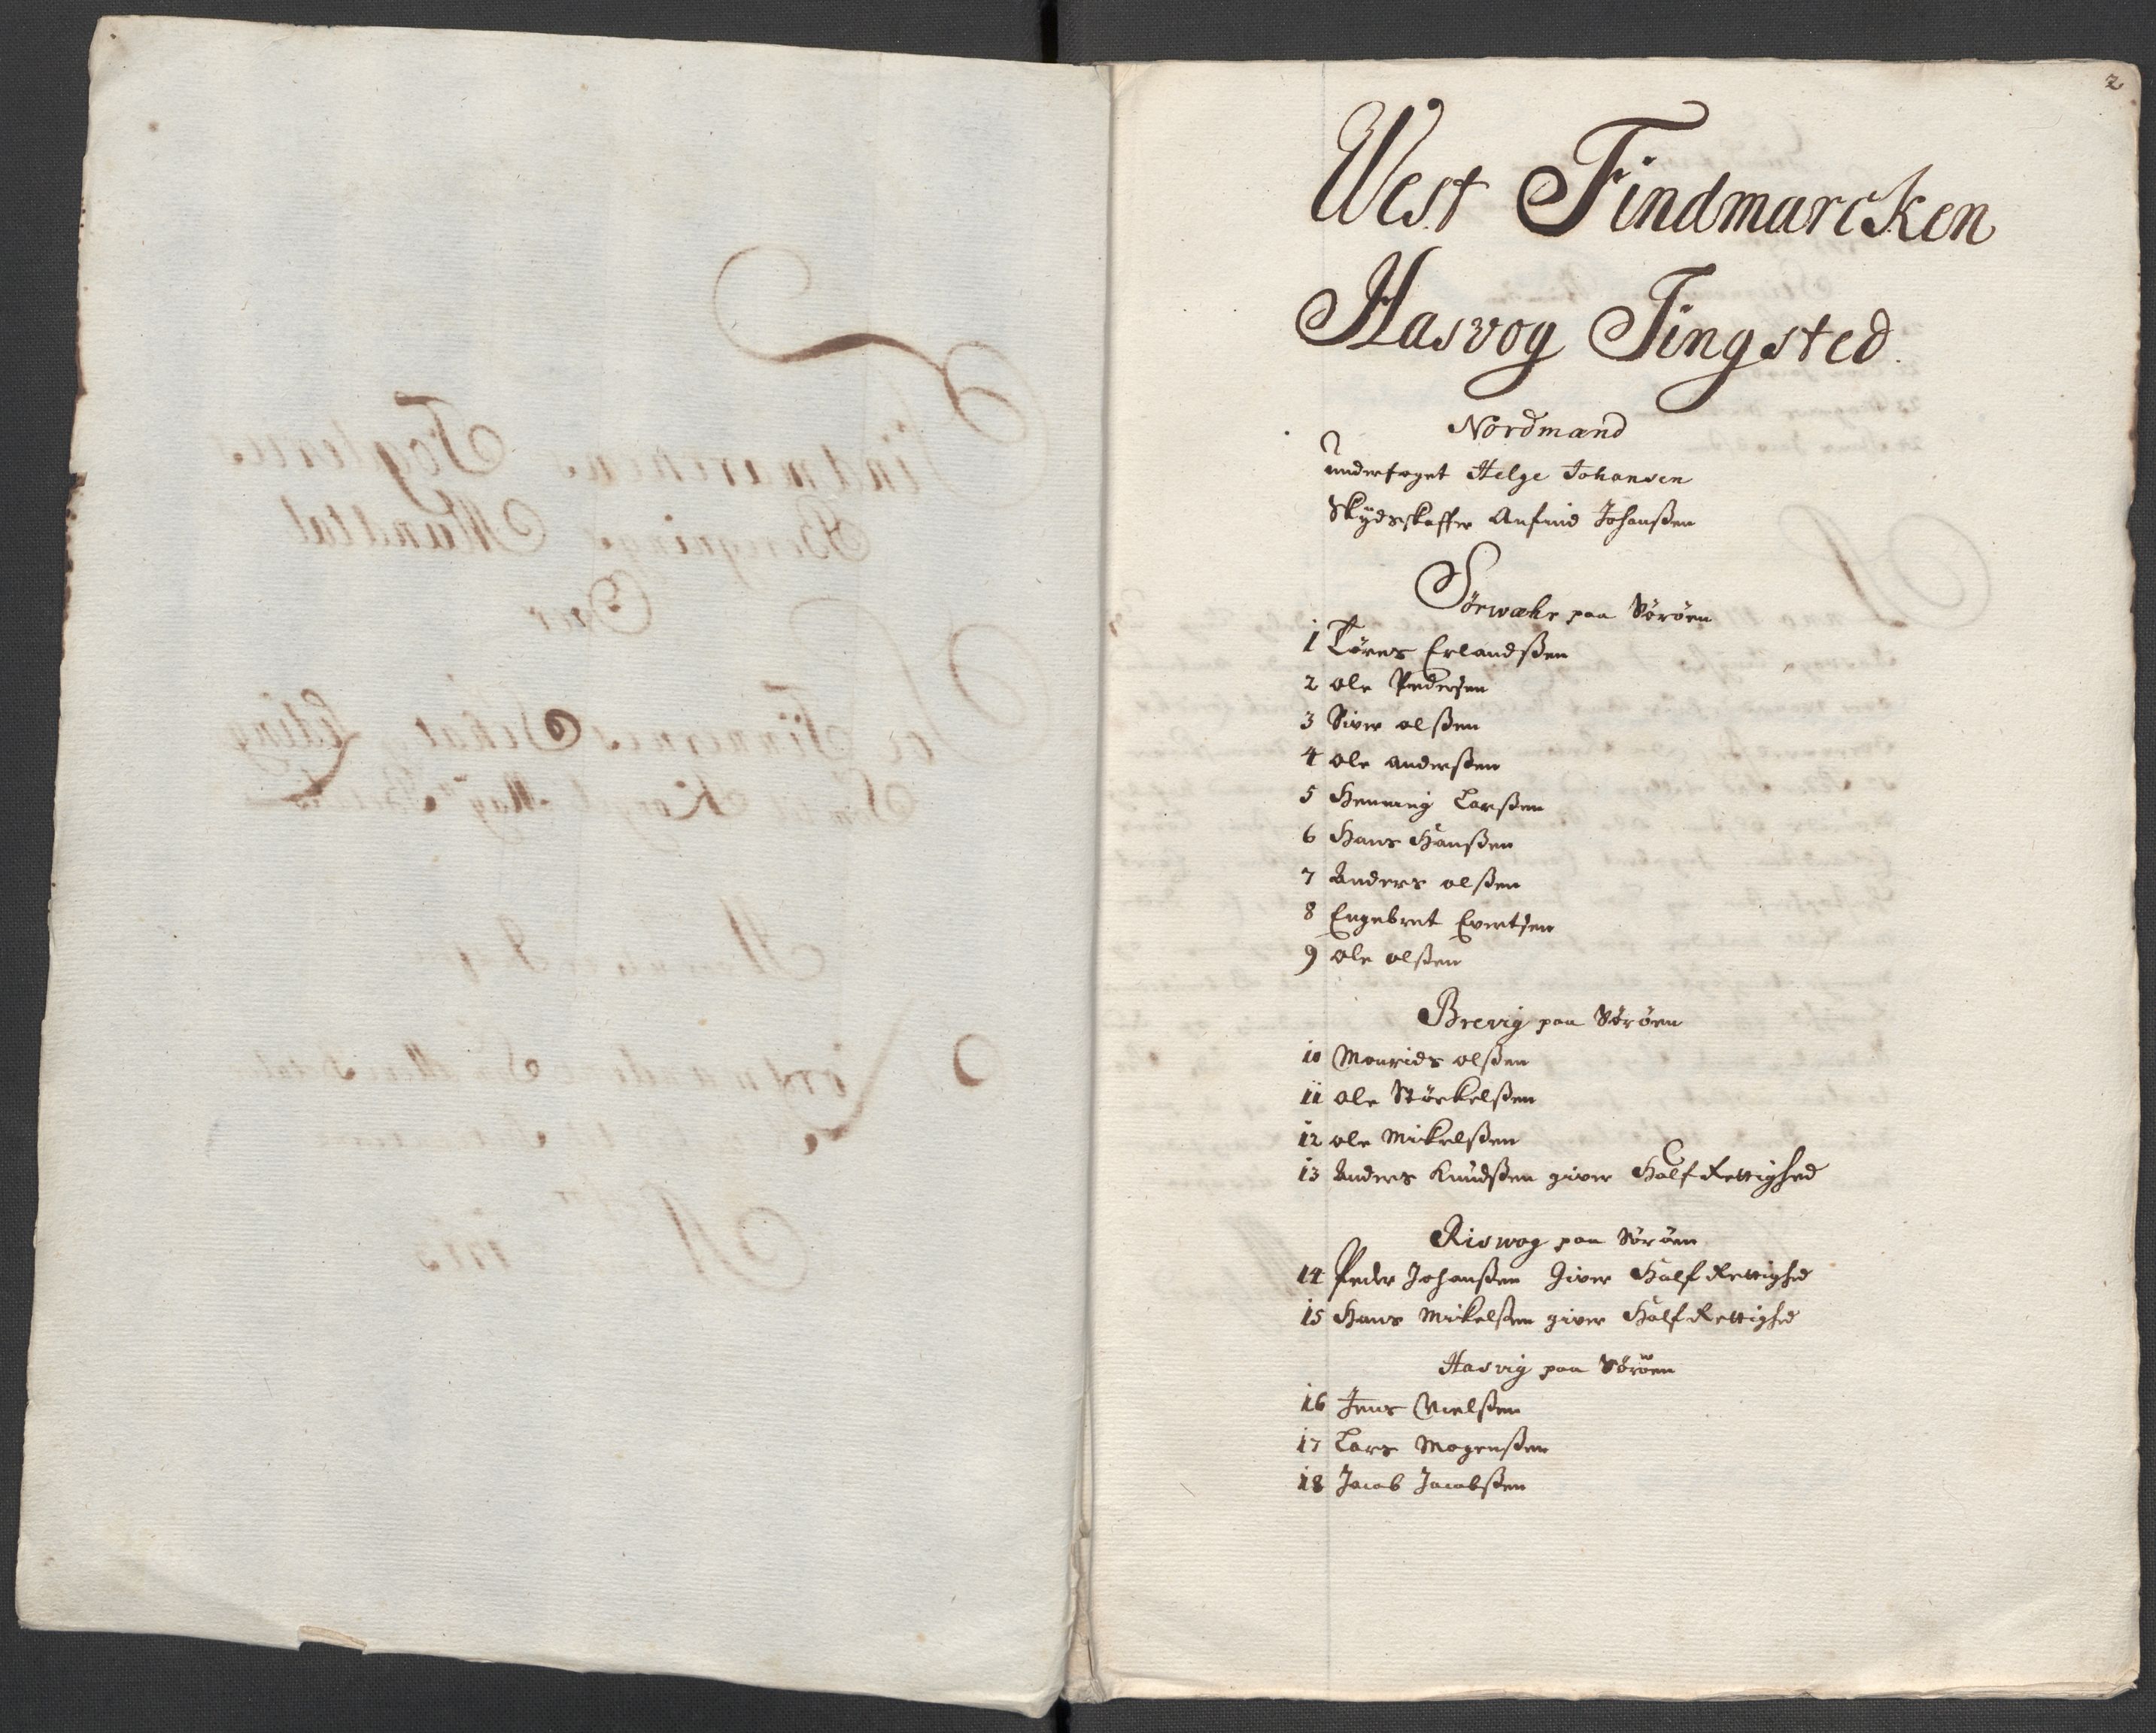 2
West Findmarcken
Hasvog Tingsted
Nordmænd
underfoget Helge Johansen
Skydsskaffer Anfind Johanßen
Sørwæhr paa Sørøen
1 Tørres Erlandßen
2 Ole Pedersen
3 Siver olßen
4 Ole anderßen
5 Henning Larßen
6 Hans Hanßen
7 Anders olßen
8 Engebret Evertsen
9 Ole olßen
Brevig paa Sørøen
10 Mourids olßen
11 Ole Størkelßen
12 Ole Mikelßen
13 Anders Knudßen giver Half Rettighed
Riswog paa Sørøen
14 Peder Johanßen Giver Half Rettighed
15 Hans Mikelßen giver Half Rettighed
Hasvig paa Sørøen
16 Jens Nielßen
17 Lars Mogenßen
18 Jacob Jacobßen